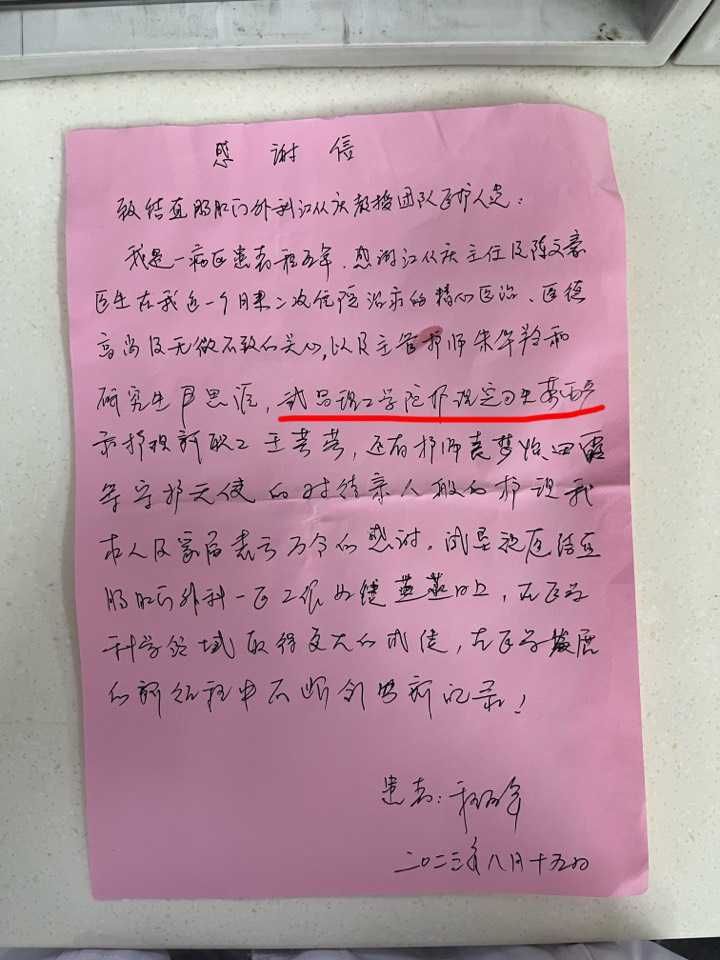 感谢信
致结直肠肛门外科江从庆教授团队医护人员:
我是一病区患者程五年、感谢江从庆主任及陈文豪
医生在我近一个月来二次住院治疗的精心医治、医德
高尚及无微不致的关心,以及主管护师朱华玲和
研究生尹思源,武昌理工学院护理实习生
和护校新职工王芳芳,还有护师袁梦怡、田雷
等守护天使的对待亲人般的护理我
本人及家属表示万分的感谢。祝愿结直
肠肛门外科一区工作如继蒸蒸日上,在医学
科学领域取得更大的成绩,在医学发展
的新征程中不断创出新记录!
患者:程五年
二〇二三年八月十五日